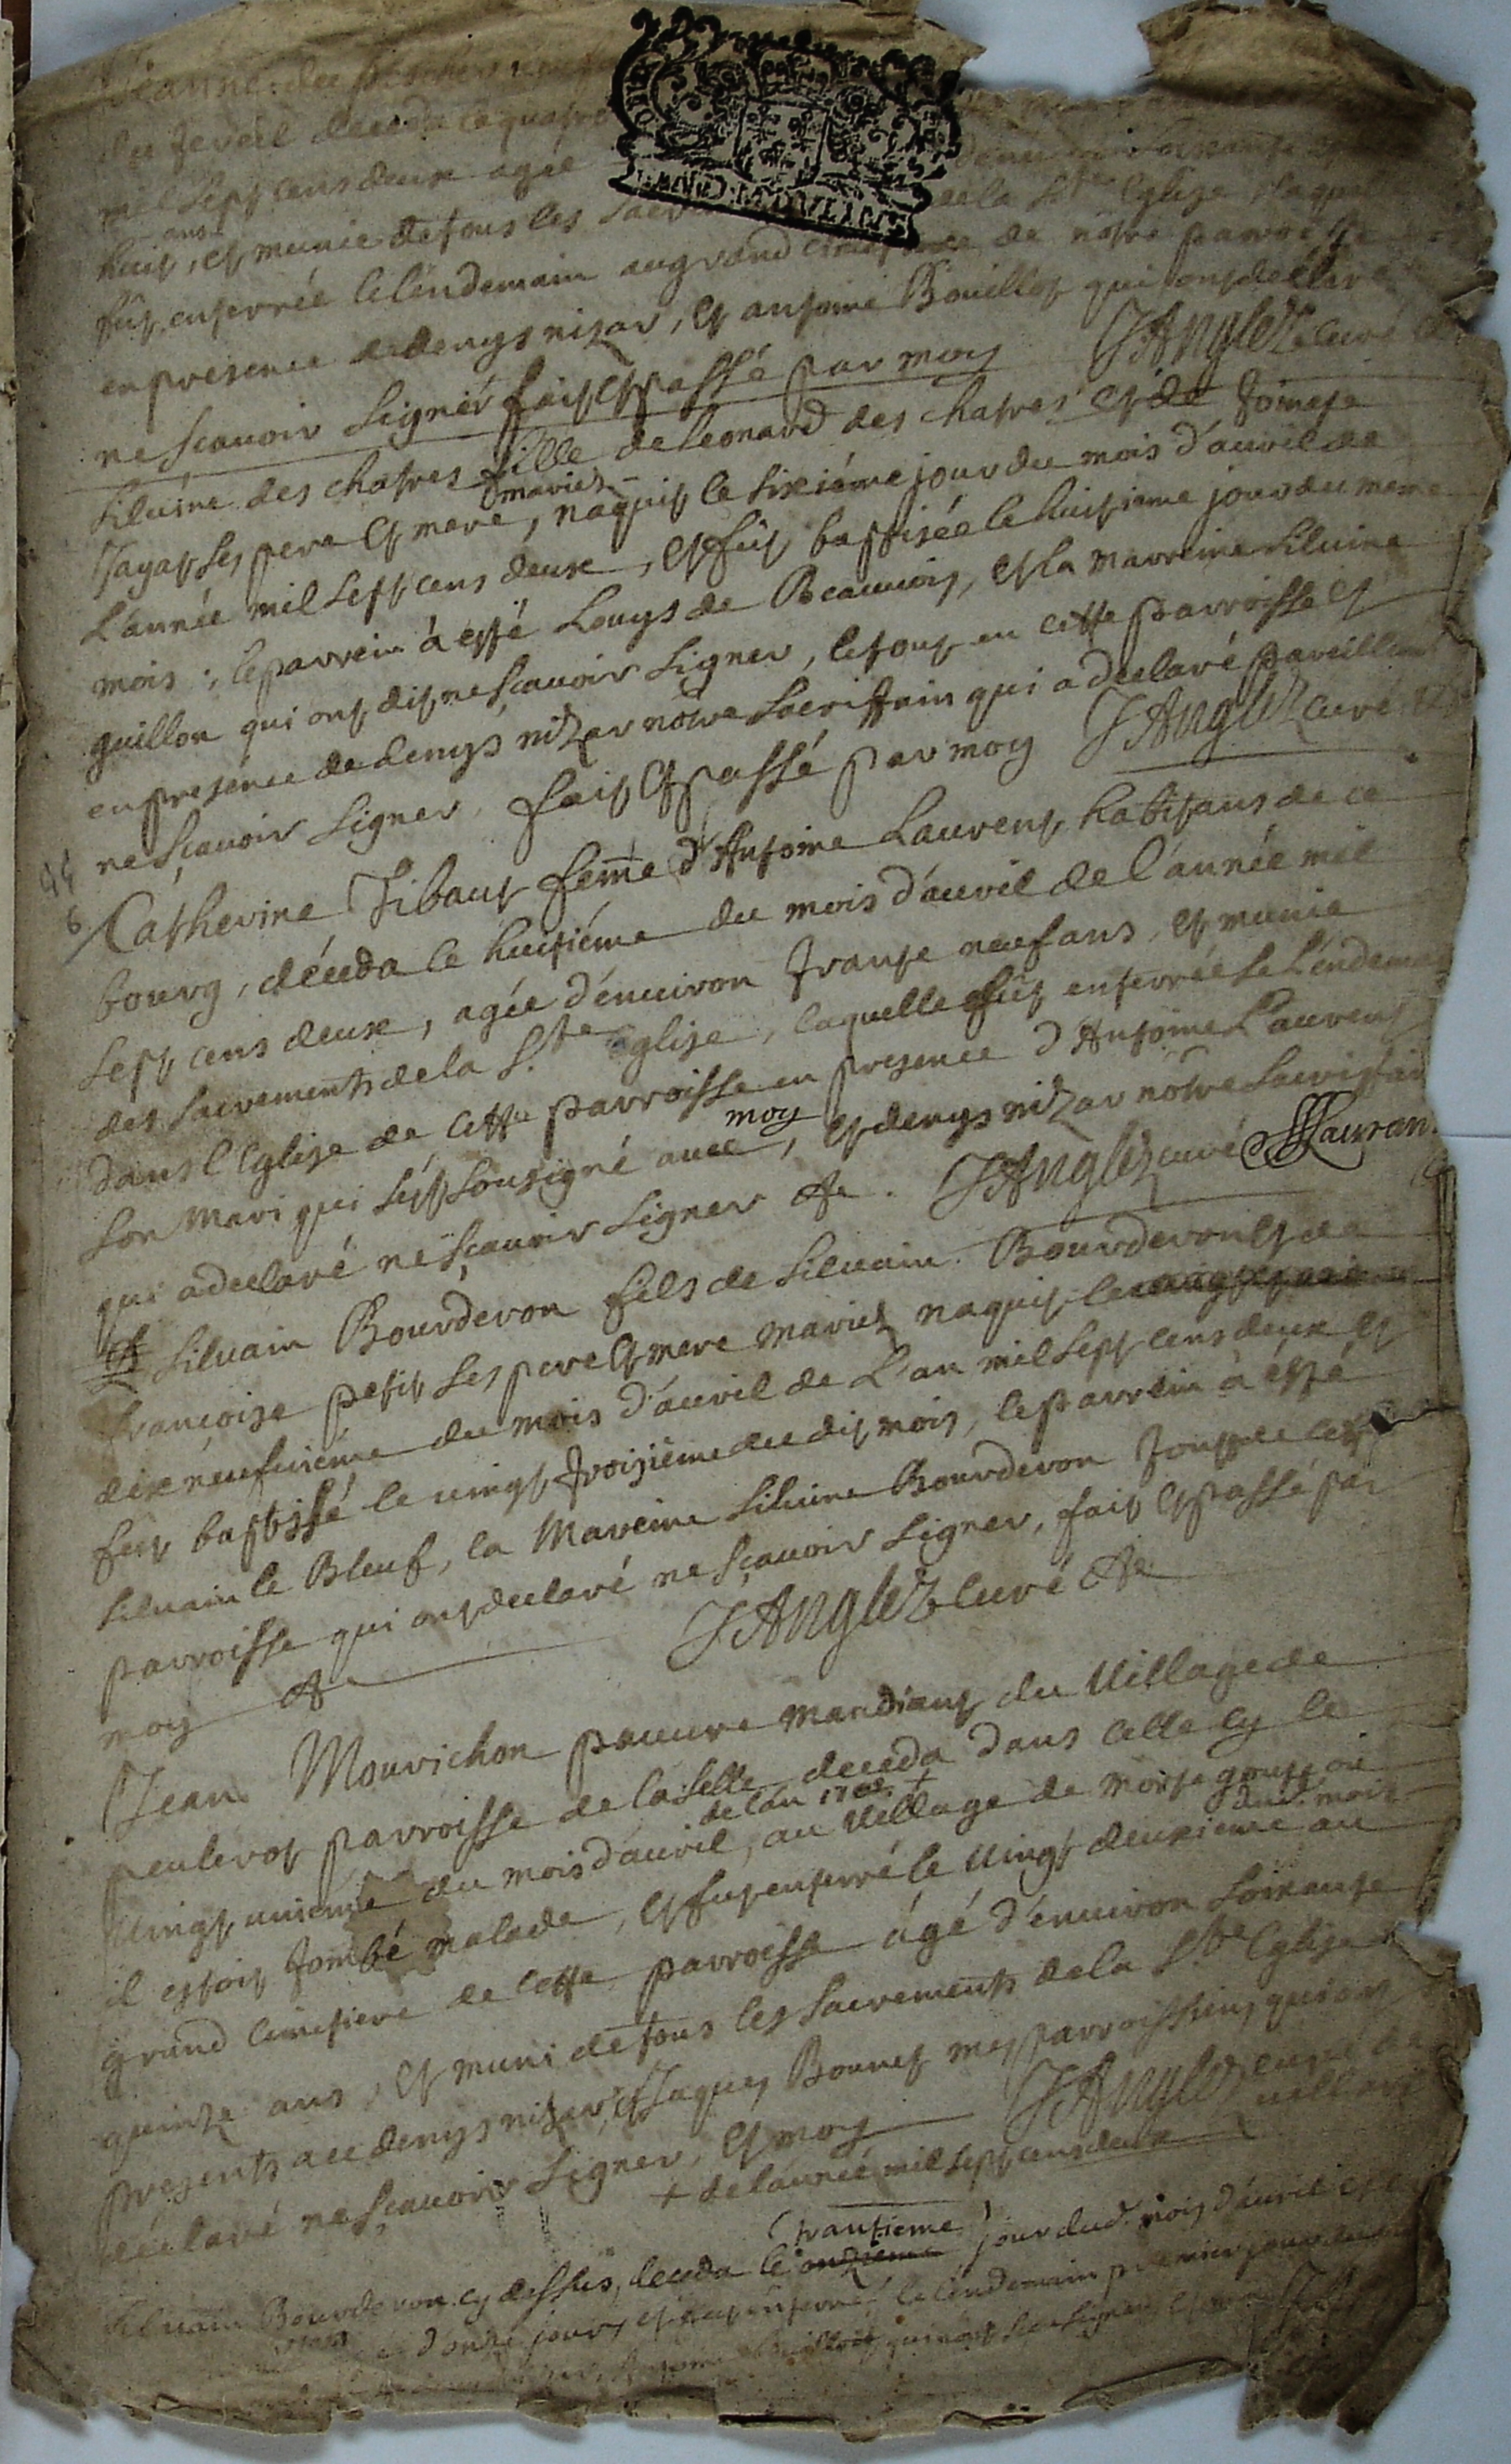 Jeanne
du decéda le quatre
mil sept cens deux agée d'enuiron soixante
huit ans, et munie de tous les sacre de la Ste Eglise, laquelle
fut enterrée le lendemain au grand cimetiere de notre parroisse
en presence de denys nizar, et antoine Bouillot qui ont declaré
ne scauoir signer fait et passé par moy JAnglez curé
GEN D MOVLINS
Siluine des chatres fille de Leonard des chatres et de Toinete
Jayat ses pere et mere mariez, naquit le sixiéme jour du mois d'auril de
L'année mil sept cens deux, et fut baptisée le huitieme jour du meme
mois; le parrein à esté Louys de Beauuois, et la marreine Siluine
guillon qui ont dit ne scauoir signer, le tout en cette parroisse et
en presence de denys nizar nôtre sacristain qui a declaré pareillemt
ne scauoir signer fait et passé par moy JAnglez curé
Catherine Tibaut feme d'Antoine Laurent habitans de ce
bourg, décéda le huitiéme du mois d'auril de l'année mil
sept cens deux, agée d'enuiron trante neuf ans, et munie
des sacrements de la Ste Eglise, laquelle fut enterrée le lendemain
dans l'Eglise de cette parroisse en presence d'Antoine Laurent
son mari qui s'est sousigné auec moy, et denys nizar nôtre sacristain
qui a declaré ne scauoir signer &c. JAnglez curé Lauran
Siluain Bourderon fils de Siluain Bourderon et de
francoise petit ses pere et mere mariez naquit le
dix neufuiéme du mois d'auril de L'an mil sept cens deux et
fut baptissé le vingt troisiéme du dit mois, le parrein à esté
Siluain le Bleuf, la Mareine Siluine Bourderon tous de cette
parroisse qui ont declaré ne scauoir signer, fait et passé par
moy &c JAnglez curé &c
Jean Mourichon pauure mandiant du Village de
peulerot parroisse de la Selle deceda dans celle cy le
vingt uniéme du mois d'auril de l'an 1702 +, au village de où
il estoit tombé malade, et fut enterré le vingt deuxieme dud. mois au
grand cimetiere de cette parroisse agé d'enuiron soixante
quinze ans, et muni de tous les sacrements de la Ste Eglise
presents denys nizar, et Jaques Bonnet mes parroissiens qui ont
déclaré ne scauoir signer, et moy JAnglez curé de
+ de l'année mil sept cens deux
Siluain Bourderon cy dessus, deceda le trantieme jour dud. mois d'auril
d'onze jours, et fut enterré le lendemain premier jour